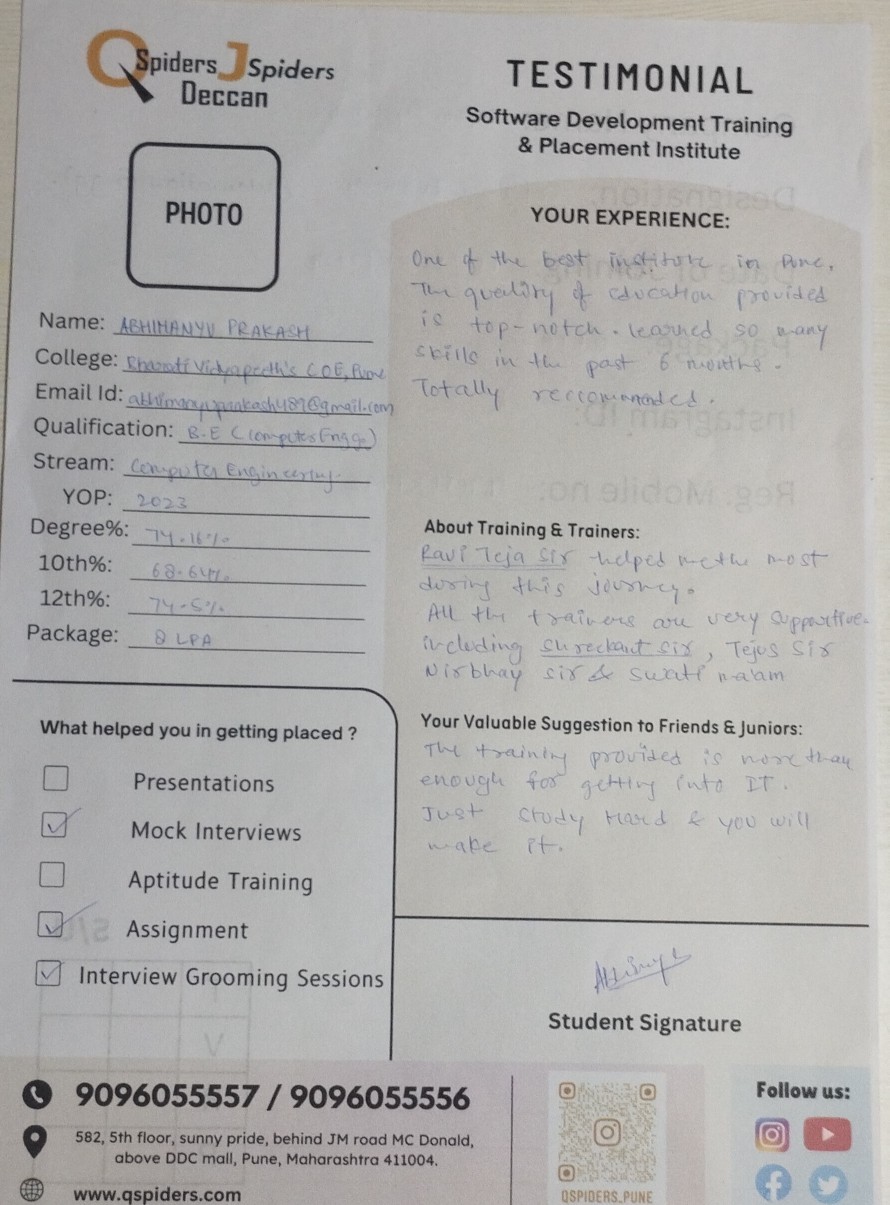 QSpiders JSpiders
Deccan
PHOTO
Name: ABHIMANYU PRAKASH
College: Bharati Vidyapeeth's COE, Pune
Email Id: abhimanyuprakash489@gmail.com
Qualification: B.E (Computer Engg.)
Stream: Computer Engineering.
YOP: 2023
Degree%: 74.16%
10th%: 68.64%
12th%: 74.5%
Package: 8 LPA
What helped you in getting placed ?
Presentations
Mock Interviews
Aptitude Training
Assignment
Interview Grooming Sessions
TESTIMONIAL
Software Development Training
& Placement Institute
YOUR EXPERIENCE:
One of the best institute in Pune,
The quality of education provided
is top-notch. learned so many
skills in the past 6 months.
Totally reccommended.
About Training & Trainers:
Ravi Teja Sir helped me the most
during this journey.
All the trainers are very supportive.
including Shreekant sir, Tejus Sir
Nirbhay sir & Swati ma'am
Your Valuable Suggestion to Friends & Juniors:
The training provided is more than
enough for getting into IT.
Just study Hard & you will
make it.
Student Signature
9096055557 / 9096055556
582, 5th floor, sunny pride, behind JM road MC Donald,
above DDC mall, Pune, Maharashtra 411004.
www.qspiders.com
QSPIDERS_PUNE
Follow us: